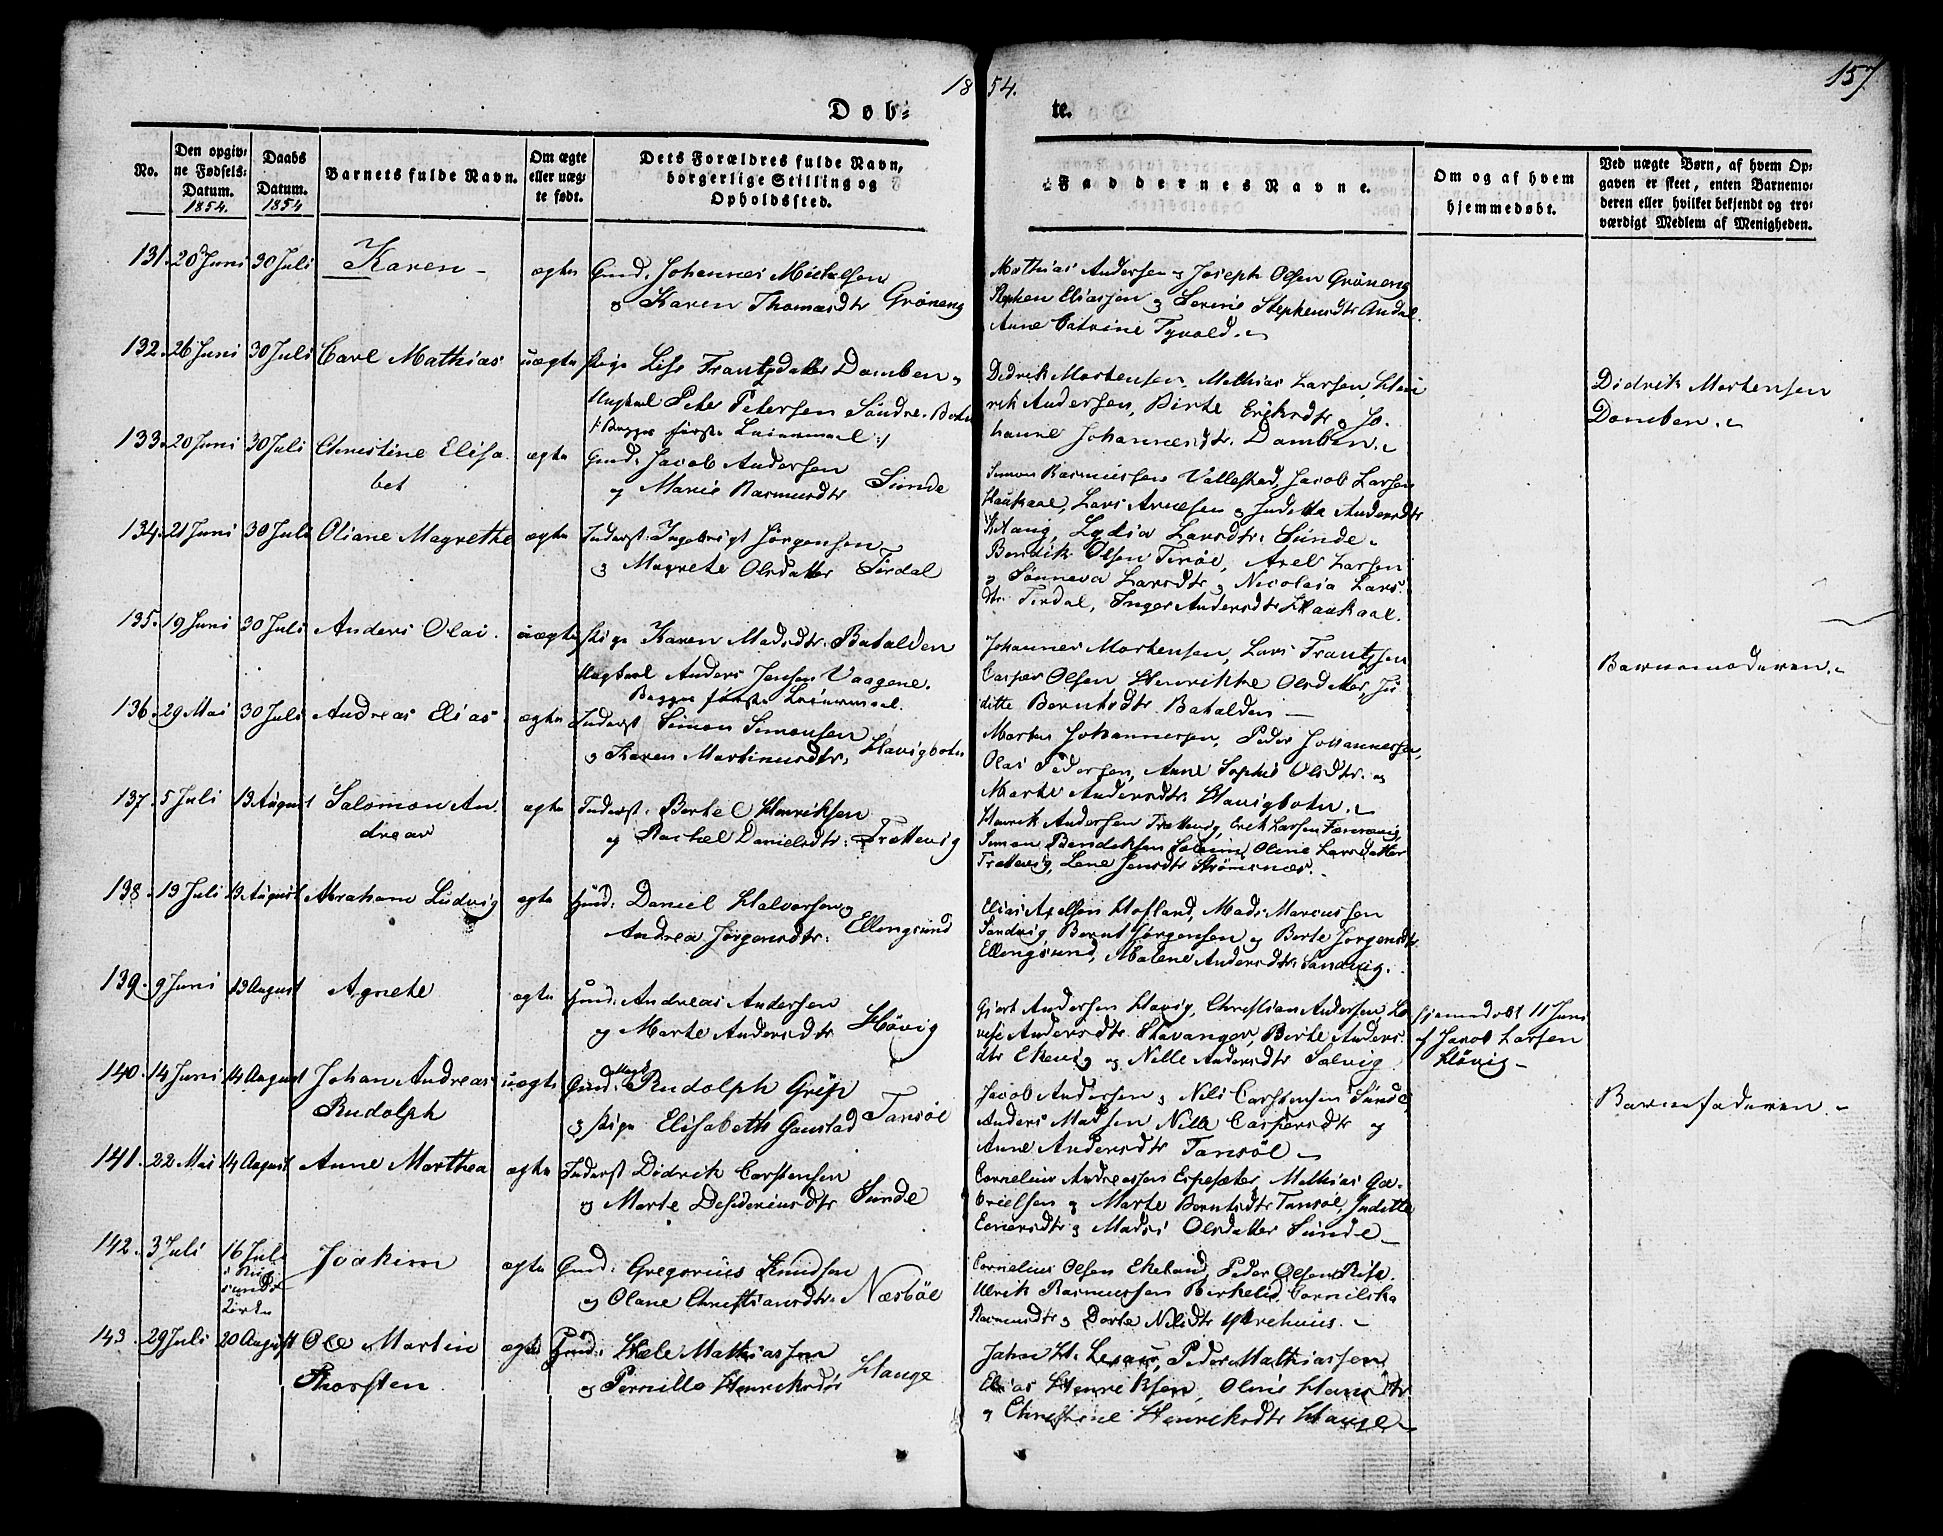 1854.
157
Døb-
te.
No.
Den opgiv-
ne Fødsels-
Datum.
1854.
Daabs
Datum.
1854
Barnets fulde Navn.
Om ægte
eller uæg-
te født.
Dets Forældres fulde Navn,
borgerlige Stilling og
Opholdssted.
Faddernes Navne.
Om og af hvem
hjemmedøbt.
Ved uægte Børn, af hvem Op-
gaven er skeet, enten Barnemo-
deren eller hvilket bekjendt og tro-
værdigt Medlem af Menigheden.
131. 20 Juni 30 Juli Karen ægte Gmd: Johannes Mickelsen
og Karen Thomasdtr Grøneng
Mathias Andersen og Joseph Olsen Grøneng
Stephen Eliassen og Serine Stephensdtr Andal
Anne Catrine Tyvold
132. 26 Juni 30 Juli Carl Mathias uægte Pige Lise Frantzdatter Domben og
Ungkarl Peter Petersen Søndre-Botn
/: Begges første Leiermaal :/
Didrik Mortensen, Mathias Larsen, Hen
rik Andersen, Birte Eriksdtr og Jo-
hanne Johannesdtr Domben
Didrik Mortensen
Domben
133. 20 Juni 30 Juli Christine Elisa
bet
ægte Gmd: Jacob Andersen
og Marie Rasmusdtr Sunde
Simon Rasmussen Vallestad, Jacob Larsen
Haukaae, Lars Arnesen og Juditte Andersdtr
Lydia Larsdtr Sunde
134. 21 Juni 30 Juli Oliane Magrethe ægte Inderst: Ingebrigt Jørgensen
og Magrete Olsdatter Terdal
Bendik Olsen Terøe, Axel Larsen
og Sønneva Larsdtr og Nicolaia Lars
dtr Terdal, Inger Andersdtr Haukaae
135. 19 Juni 30 Juli Anders Olai uægte Pige Karen Madsdtr Batalden
Ungkarl Anders Jensen Vaagene.
Begges første Leiermaal.
Johannes Mortensen, Lars Frantzsen
Casper Olsen Henrikke Olsdatter, Ju
ditte Berntsdtr Batalden
Barnemoderen
136. 29 Mai 30 Juli Andreas Elias ægte Inderst Simon Simonsen
og Karen Martinusdtr Havigbotn
Morten Johannessen, Peder Johannessen,
Olai Pedersen, Anne Sophie Olsdtr og
Marte Andersdtr Havigbotn
137. 5 Juli 13 August Salomon An
dreas
ægte Inderst: Berte C Henriksen
og Rachel Danielsdtr: Trettevig
Henrik Andersen Trettevig, Erik Larsen Færevaag
Simon Bendiksen Solem, Oline Larsdatter
Trettevig, Lene Jensdtr Strømsnæs
138. 13 Juli 13 August Abraham Ludvig ægte Gmd: Daniel Halvorsen og
Andrea Jørgensdtr: Ellengsund
Elias Axelsen Hofland, Mads Marcussen
Sandvig Bernt Jørgensen og Berte Jørgensdtr
Ellengsund, Malene Andersdtr Sandvig
139. 9 Juni 13 August Agnete ægte Gmd: Andreas Andersen
og Marte Andersdtr Høvig
Gjert Andersen Havig, Christian Andersen, Lo
vise Andersdtr Stavanger, Berte Anders
dtr Ekevig og Nille Andersdtr Solvig
Hjemmedøbt 11 Juni
af Jacob Larsen
Høvig
140. 14 Juni 14 August Johan Andreas
Rudolph
uægte Gmd: Rudolph Grip
og Pige Elisabeth Gaustad Tansøe
Jacob Andersen og Nils Carstensen Sunde,
Anders Madsen Nille Caspersdtr og
Anne Andersdtr Tansøe
Barnefaderen
141. 22 Mai 14 August Anne Marthea ægte Inderst Didrik Carstensen
og Marte Desideriusdtr Sunde
Cornelius Andreassen Espesæter, Mathias Ga-
brielsen og Marte Berntsdtr Tansøe, Juditte
Madsi Olsdatter Sunde
142. 3 Juli 16 Juli
i
sunds
Kirke
Joakim ægte Gmd: Gregorius Knudsen
og Olane Christiansdtr Næsbøe
Cornelius Olsen Ekeland, Peder Olsen Risk.
Ulrik Rasmussen Birkelid, Cornilska
Rasmusdtr og Dorte Nilsdtr Yttrehuus
143. 29 Juli 20 August Ole Martin
Thorsten
ægte Gmd: Hæle Mathiassen
og Pernille Henriksdtr Hauge
John H. Leraas, Peder Mathiassen
Elias Henriksen, Oline Hansdtr
og Christine Henriksdtr Hauge